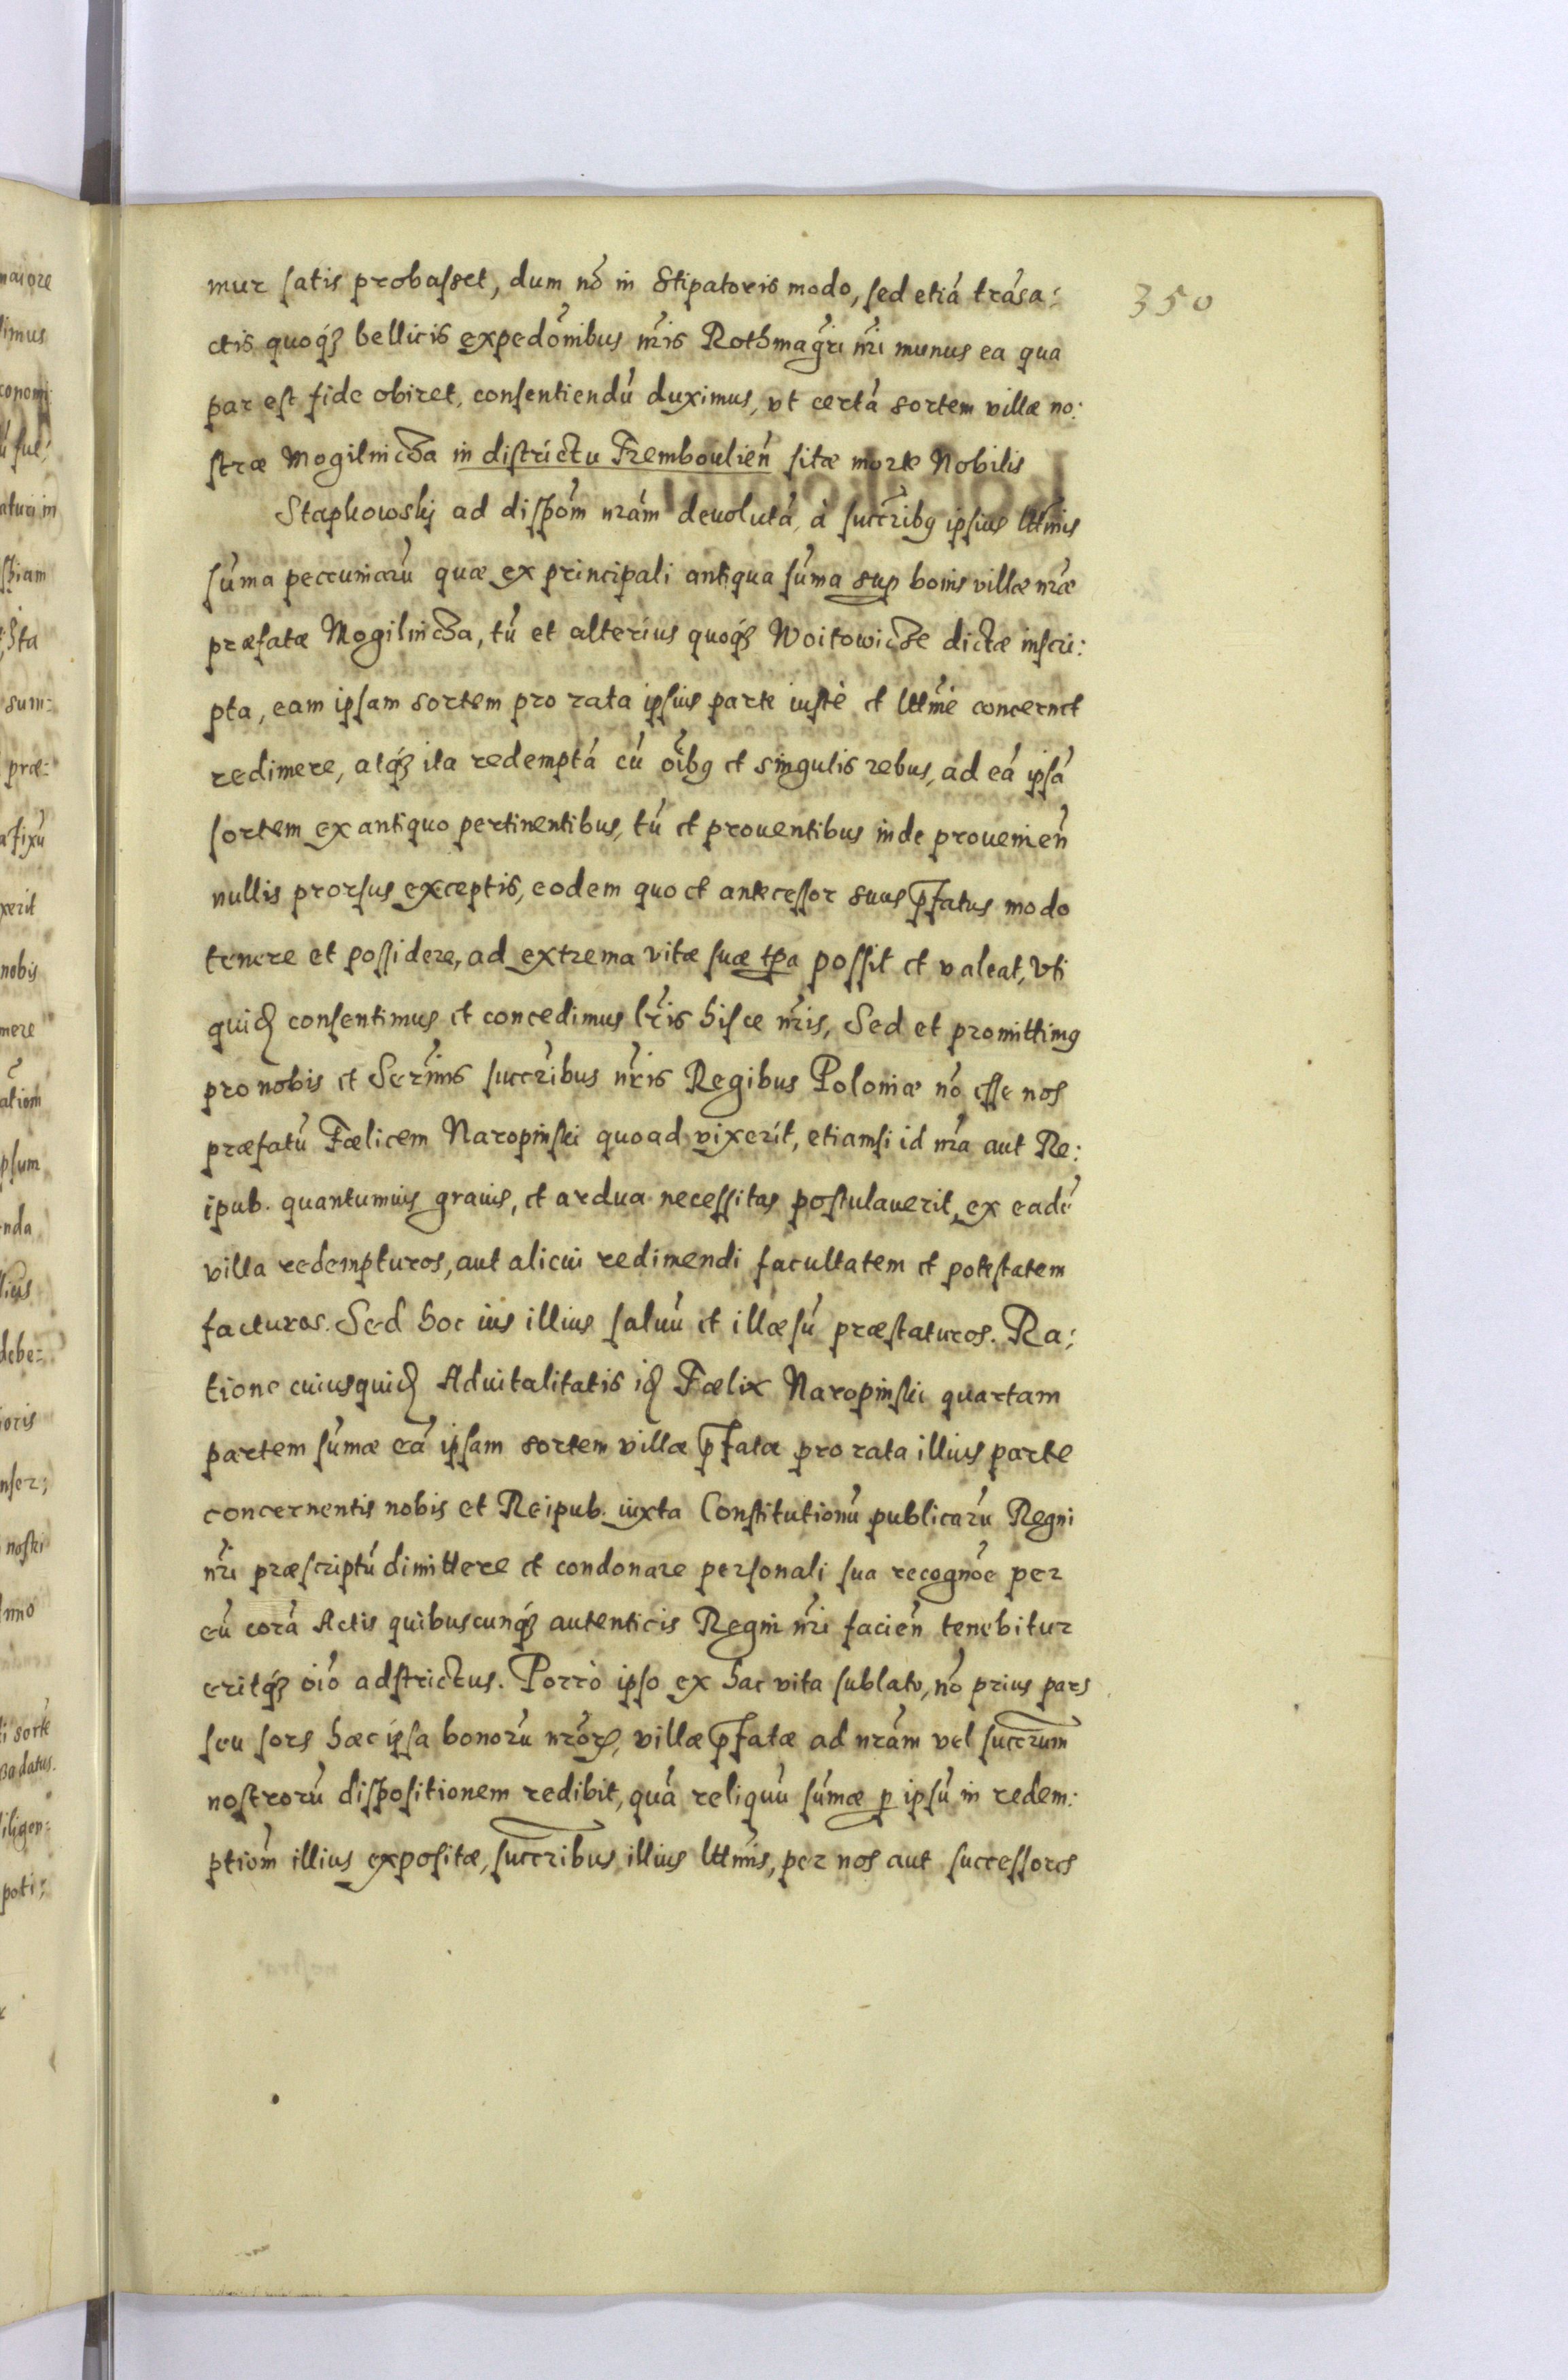 350
mur satis probasset, dum nō in Stipatoris modo, sed etiā trāsa:
ctis quoq́ꝫ bellicis expedōnibus nr̄is Rothmagr̄i nr̄i munus ea qua
par est fide obiret, consentiendū duximus, vt certā sortem villæ no:
stræ Mogilnicza in districtu Trembouliēn sitæ morte Nobilis
Stapkowskj ad dispōm nrām deuolutā, à succr̄ibꝯ ipsius lttīmis
sūma pecuniarū quæ ex principali antiqua sūma sup bonis villæ nr̄æ
præfatæ Mogilnicza, tū et alterius quoq́ꝫ Woitowicze dictæ inscri:
pta, eam ipsam sortem pro rata ipsius parte iustè et lttīme concernet
redimere, atq́ꝫ ita redemptā cū oībꝯ et singulis rebus, ad eā ipsā
sortem ex antiquo pertinentibus, tū et prouentibus inde prouenieñ
nullis prorsus exceptis, eodem quo et antecessor suus p̄fatus modo
tenere et possidere, ad extrema vitæ suæ tp̄a possit et valeat, Vti
quidꝫ consentimus et concedimus lr̄is hisce nr̄is, Sed et promittimꝯ
pro nobis et Serīmis succr̄ibus nr̄is Regibus Poloniæ nō esse nos
præfatū Fœlicem Naropinski quoad vixerit, etiamsi id nr̄a aut Re:
ipub. quantumuis grauis, et ardua necessitas postulauerit, ex eadē
villa redempturos, aut alicui redimendi facultatem et potestatem
facturos. Sed hoc ius illius saluū et illæsū præstaturos. Ra:
tione cuiusquidꝫ Aduitalitatis idꝫ Fœlix Naropinski quartam
partem sūmæ eā ipsam sortem villæ p̄fatæ pro rata illius parte
concernentis nobis et Reipub. iuxta Constitutionū publicarū Regni
nr̄i præscriptū dimittere et condonare personali sua recognōe per
eū corā Actis quibuscunq́ꝫ autenticis Regni nr̄i facieñ tenebitur
eritq́ꝫ oīo adstrictus. Porrò ipso ex hac vita sublato, nō prius pars
seu sors hæc ipsa bonorū nrōrꝝ, villæ p̄fatæ ad nrām vel succr̄um
nostrorū dispositionem redibit, quā reliquū sūmæ ꝑ ipsū in redem:
ptiōm illius expositæ, succr̄ibus illius lttīmis, per nos aut successores